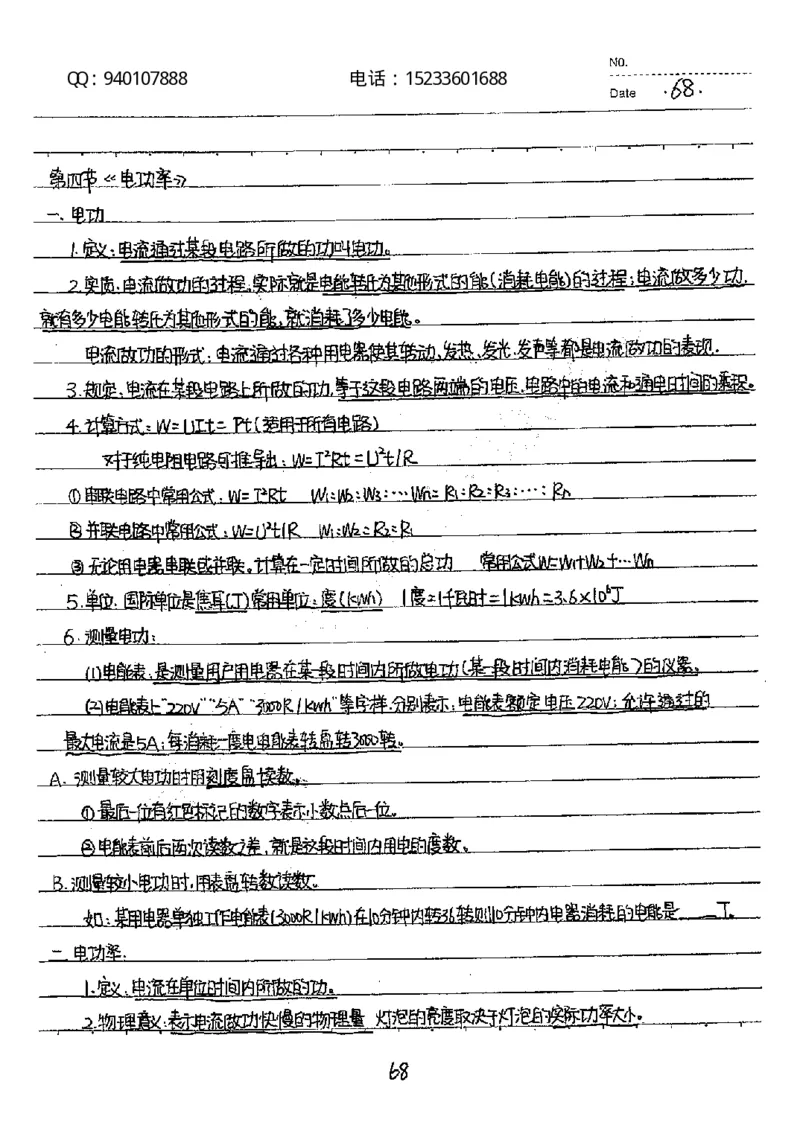 NO.
QQ：940107888 电话：15233601688
Date ·68·
第四节《电功率》
一、电功
1.定义：电流通过某段电路所做的功叫电功。
2.实质：电流做功的过程，实际就是电能转化为其他形式的能(消耗电能)的过程；电流做多少功，
就有多少电能转化为其他形式的能，就消耗了多少电能。
电流做功的形式：电流通过各种用电器使其转动、发热、发光、发声等都是电流做功的表现.
3.规定：电流在某段电路上所做的功，等于这段电路两端的电压、电路中的电流和通电时间的乘积。
4.计算方式：W=UIt=Pt(适用于所有电路)
对于纯电阻电路可推导出：W=I²Rt=U²t/R
①串联电路中常用公式：W=I²Rt W₁:W₂:W₃:…Wn=R₁:R₂:R₃:…:Rn
②并联电路中常用公式：W=U²t/R W₁:W₂=R₂:R₁
③无论用电器串联或并联。计算在一定时间所做的总功 常用公式W=W₁+W₂+…Wn
5.单位：国际单位是焦耳(J)常用单位：度(kwh) 1度=1千瓦时=1kwh=3.6×10⁶J
6.测量电功：
(1)电能表：是测量用户用电器在某一段时间内所做电功(某一段时间内消耗电能)的仪器。
(2)电能表上"220V""5A""3000R/kwh"等字样，分别表示：电能表额定电压220V；允许通过的
最大电流是5A；每消耗一度电电能表转盘转3000转。
A.测量较大电功时用刻度盘读数。
①最后一位有红色标记的数字表示小数点后一位。
②电能表前后两次读数之差，就是这段时间内用电的度数。
B.测量较小电功时，用表盘转数读数。
如：某用电器单独工作电能表(3000R/kwh)在10分钟内转36转则10分钟内电器消耗的电能是____J.
二、电功率.
1.定义：电流在单位时间内所做的功。
2.物理意义：表示电流做功快慢的物理量 灯泡的亮度取决于灯泡的实际功率大小。
68